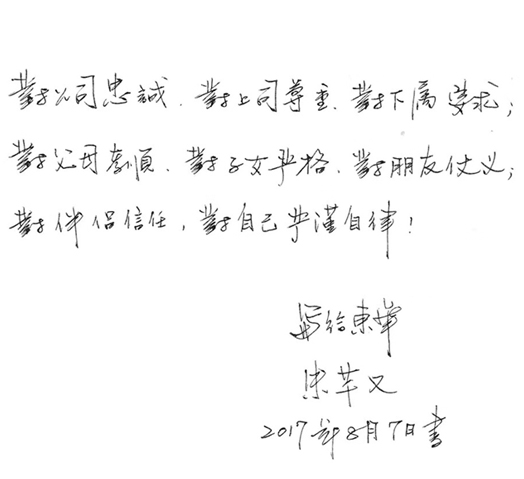 對公司忠誠、對上司尊重、對下属要求;
對父母孝順、對子女严格、對朋友仗义;
對伴侣信任,對自己严谨自律!
写给東华
宋芊又
2017年8月7日書